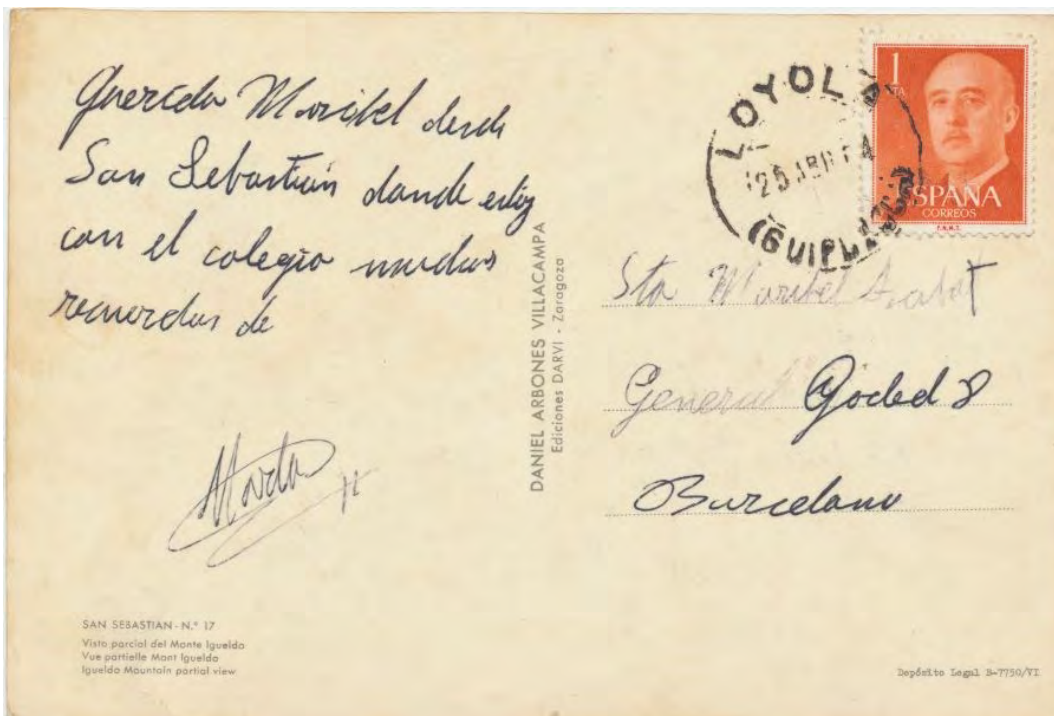 Querida Maribel desde
San Sebastián donde estoy
con el colegio muchos
recuerdos de
Marta
SAN SEBASTIAN - N.º 17
Vista parcial del Monte Igueldo
Vue partielle Mont Igueldo
Igueldo Mountain partial view
DANIEL ARBONES VILLACAMPA
Ediciones DARVI - Zaragoza
LOYOLA
25 ABR 64
(GUIPUZCOA)
1
PTA
ESPAÑA
CORREOS
F.N.M.T.
Sta Maribel
General Goded 8
Barcelona
Depósito Legal B-7750/VI